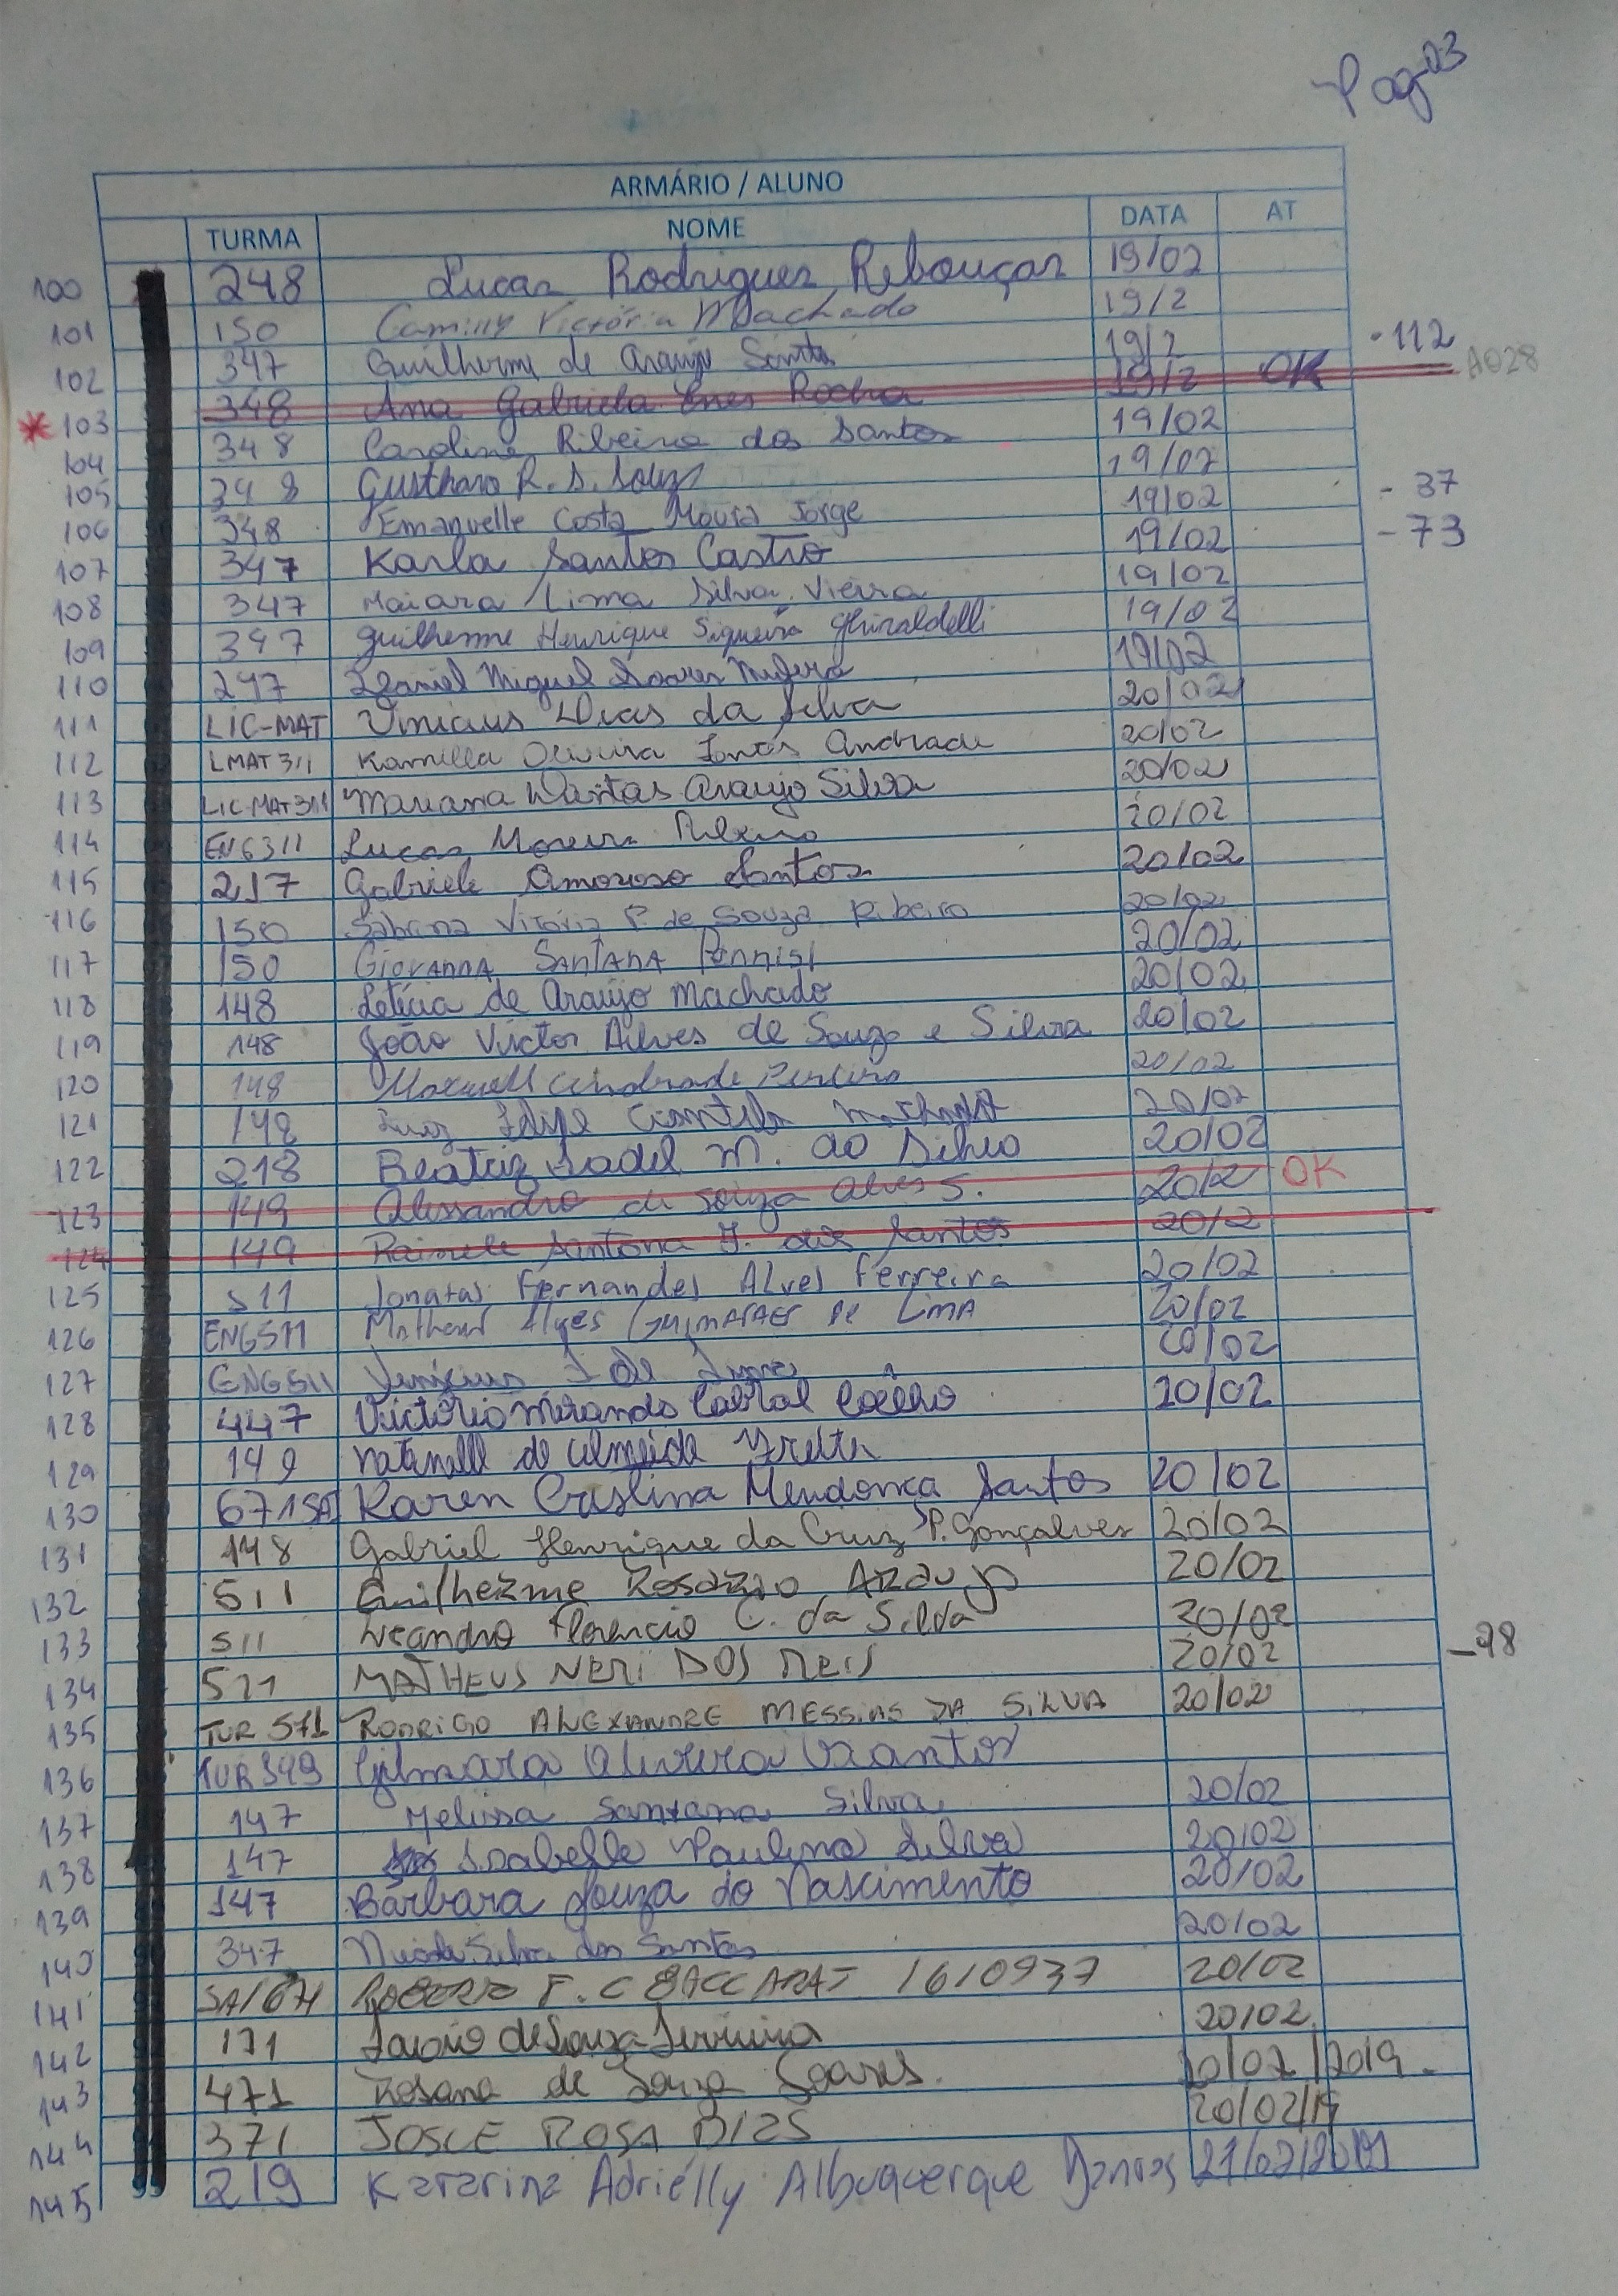 Pag-03
ARMÁRIO / ALUNO
TURMA NOME DATA AT
100 248 Lucas Rodrigues Rebouças 19/02
101 150 Camilly Victória Machado 19/2
102 347 Guilherme de Araujo Santos 19/2 - 112
103 348 Ana Gabriela Enes Rocha 19/2 OK A028
104 348 Caroline Ribeiro dos Santos 19/02
105 348 Gusthavo R. S. Souza 19/02
106 348 Emanuelle Costa Moura Jorge 19/02 - 37
107 347 Karla Santos Castro 19/02 - 73
108 347 Maiara Lima Silva Vieira 19/02
109 347 Guilherme Henrique Siqueira Ghiraldelli 19/02
110 247 Daniel Miguel Soares 19/02
111 LIC-MAT Vinicius Dias da Silva 20/02
112 LMAT311 Kamilla Oliveira Andrade 20/02
113 LIC-MAT311 Mariana Dantas Araujo Silva 20/02
114 ENG311 Lucas Moreira Ribeiro 20/02
115 217 Gabriele Amoroso Santos 20/02
116 150 Sabrina Vitória P. de Souza Ribeiro 20/02
117 150 Giovanna Santana Pennisi 20/02
118 148 Letícia de Araújo Machado 20/02
119 148 João Victor Alves de Souza e Silva 20/02
120 148 Maxwell Andrade Pereira 20/02
121 148 Luiz Felipe 20/02
122 218 Beatriz Sadel M. da Silva 20/02
123 149 Alessandra de Souza Alves S. 20/2 OK
124 149 Santana J. dos Santos 20/2
125 511 Jonatas Fernandes Alves Ferreira 20/02
126 ENG511 Matheus Alves Guimarães de Lima 20/02
127 ENG511 Vinícius de 20/02
128 447 Victória Miranda Cabral Coêlho 20/02
129 149 de Almeida
130 671SAI Karen Cristina Mendonça Santos 20/02
131 148 Gabriel Henrique da Cruz P. Gonçalves 20/02
132 511 Guilherme Rosário Araujo 20/02
133 511 Leandro Florencio C. da Silva 20/02
134 511 MATHEUS NERI DOS REIS 20/02 - 98
135 TUR 571 RODRIGO ALEXANDRE MESSIAS DA SILVA 20/02
136 TUR 349 Gilmara Oliveira Santos
137 147 Melissa Santana Silva 20/02
138 147 Isabelle Paulina Silva 20/02
139 147 Bárbara Souza do Nascimento 20/02
140 347 Silva dos Santos 20/02
141 SAI671 ROBERTO F. C BACCARAT 1610937 20/02
142 171 de Souza Ferreira 20/02
143 471 Rosana de Souza Soares. 20/02/2019
144 371 JOSCE ROSA DIAS 20/02/19
145 219 Katarina Adriélly Albuquerque Dantas 21/02/2019